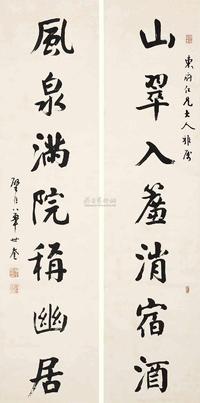 東府仁兄大人雅屬
山翠入簾消宿酒
風泉滿院稱幽居
覃世奎